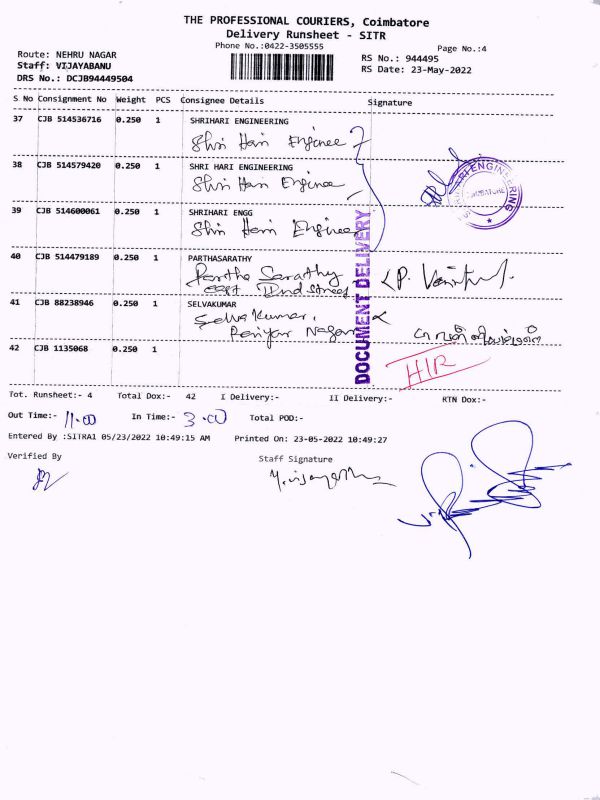 THE PROFESSIONAL COURIERS, Coimbatore
Delivery Runsheet - SITR
Phone No.:0422-3505555
Page No.:4
Route: NEHRU NAGAR
RS No.: 944495
Staff: VIJAYABANU
RS Date: 23-May-2022
DRS No.: DCJB94449504
S No Consignment No Weight PCS Consignee Details Signature
37 CJB 514536716 0.250 1 SHRIHARI ENGINEERING
Shri Hari Enginee
38 CJB 514579420 0.250 1 SHRI HARI ENGINEERING
Shri Hari Enginee
39 CJB 514600061 0.250 1 SHRIHARI ENGG
Shri Hari Enginee
40 CJB 514479189 0.250 1 PARTHASARATHY
Partha Sarathy
East IInd street
41 CJB 88238946 0.250 1 SELVAKUMAR
Selva Kumar,
Periyar Nagar
42 CJB 1135068 0.250 1
H/R
DOCUMENT DELIVERY
ENGINEERING
COIMBATORE
Tot. Runsheet:- 4 Total Dox:- 42 I Delivery:- II Delivery:- RTN Dox:-
Out Time:- 11.00 In Time:- 3.00 Total POD:-
Entered By :SITRA1 05/23/2022 10:49:15 AM Printed On: 23-05-2022 10:49:27
Verified By Staff Signature